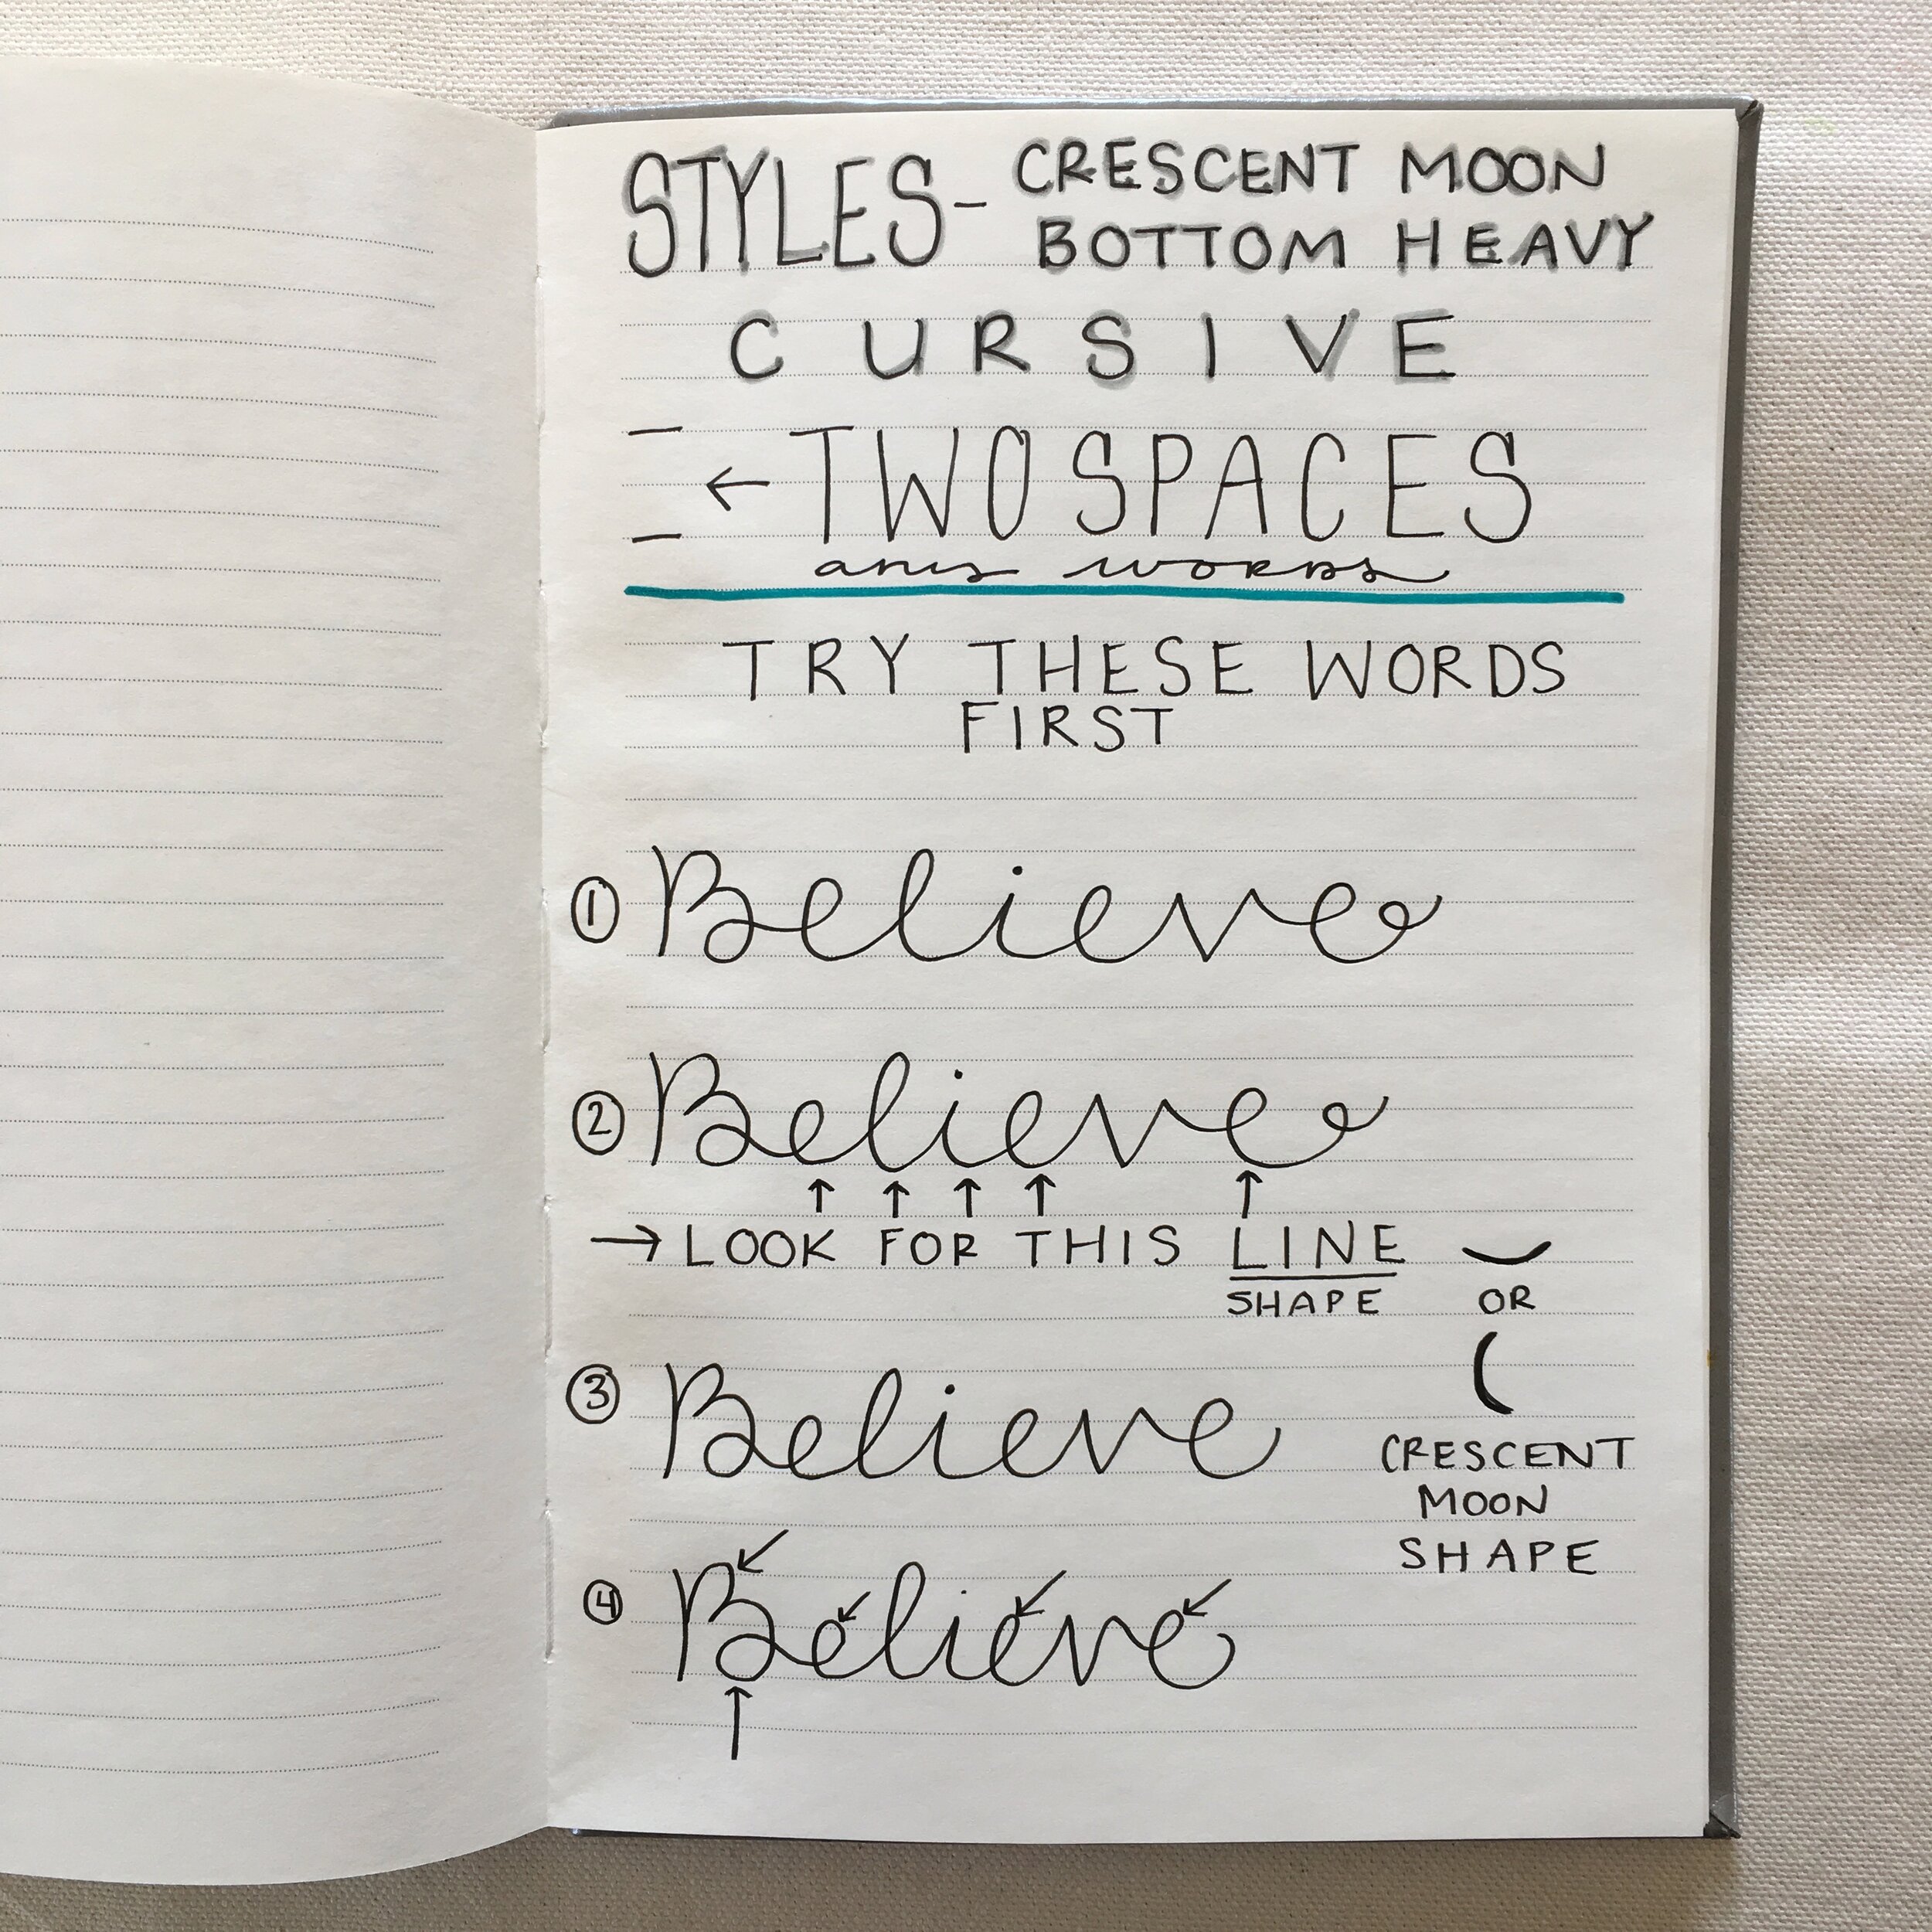 STYLES- CRESCENT MOON
BOTTOM HEAVY
CURSIVE
← TWO SPACES
any words
TRY THESE WORDS
FIRST
① Believe
② Believe
↑ ↑ ↑ ↑ ↑
→ LOOK FOR THIS LINE
SHAPE OR
(
③ Believe
CRESCENT
MOON
SHAPE
④ Believe